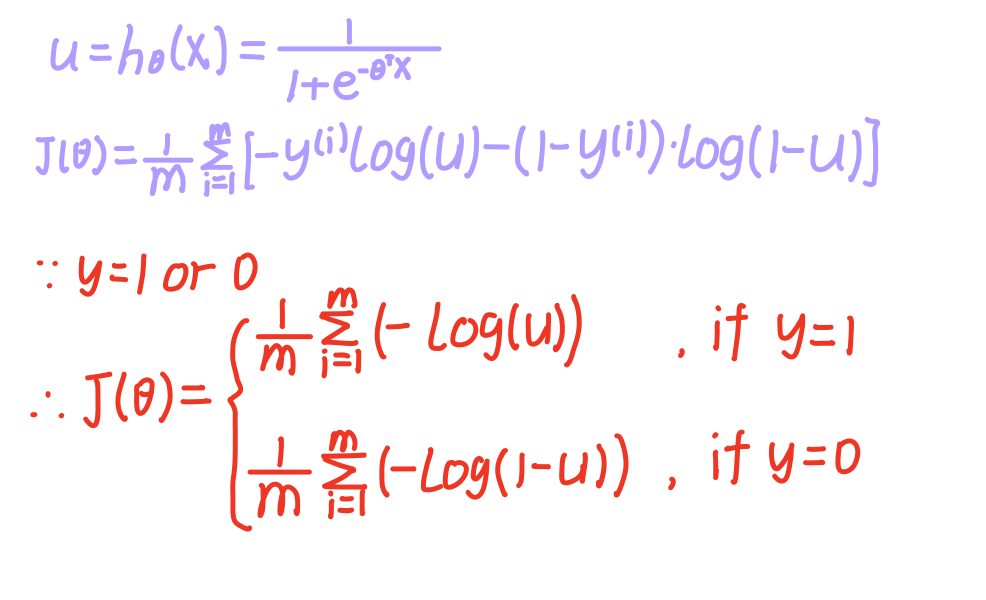 u = hθ(x) = 1/(1+e^(-θᵀx))
J(θ) = 1/m Σ_{i=1}^{m} [-y^(i) log(u) - (1-y^(i))·log(1-u)]
∵ y=1 or 0
∴ J(θ) = { 1/m Σ_{i=1}^{m} (-log(u)) , if y=1
1/m Σ_{i=1}^{m} (-log(1-u)) , if y=0